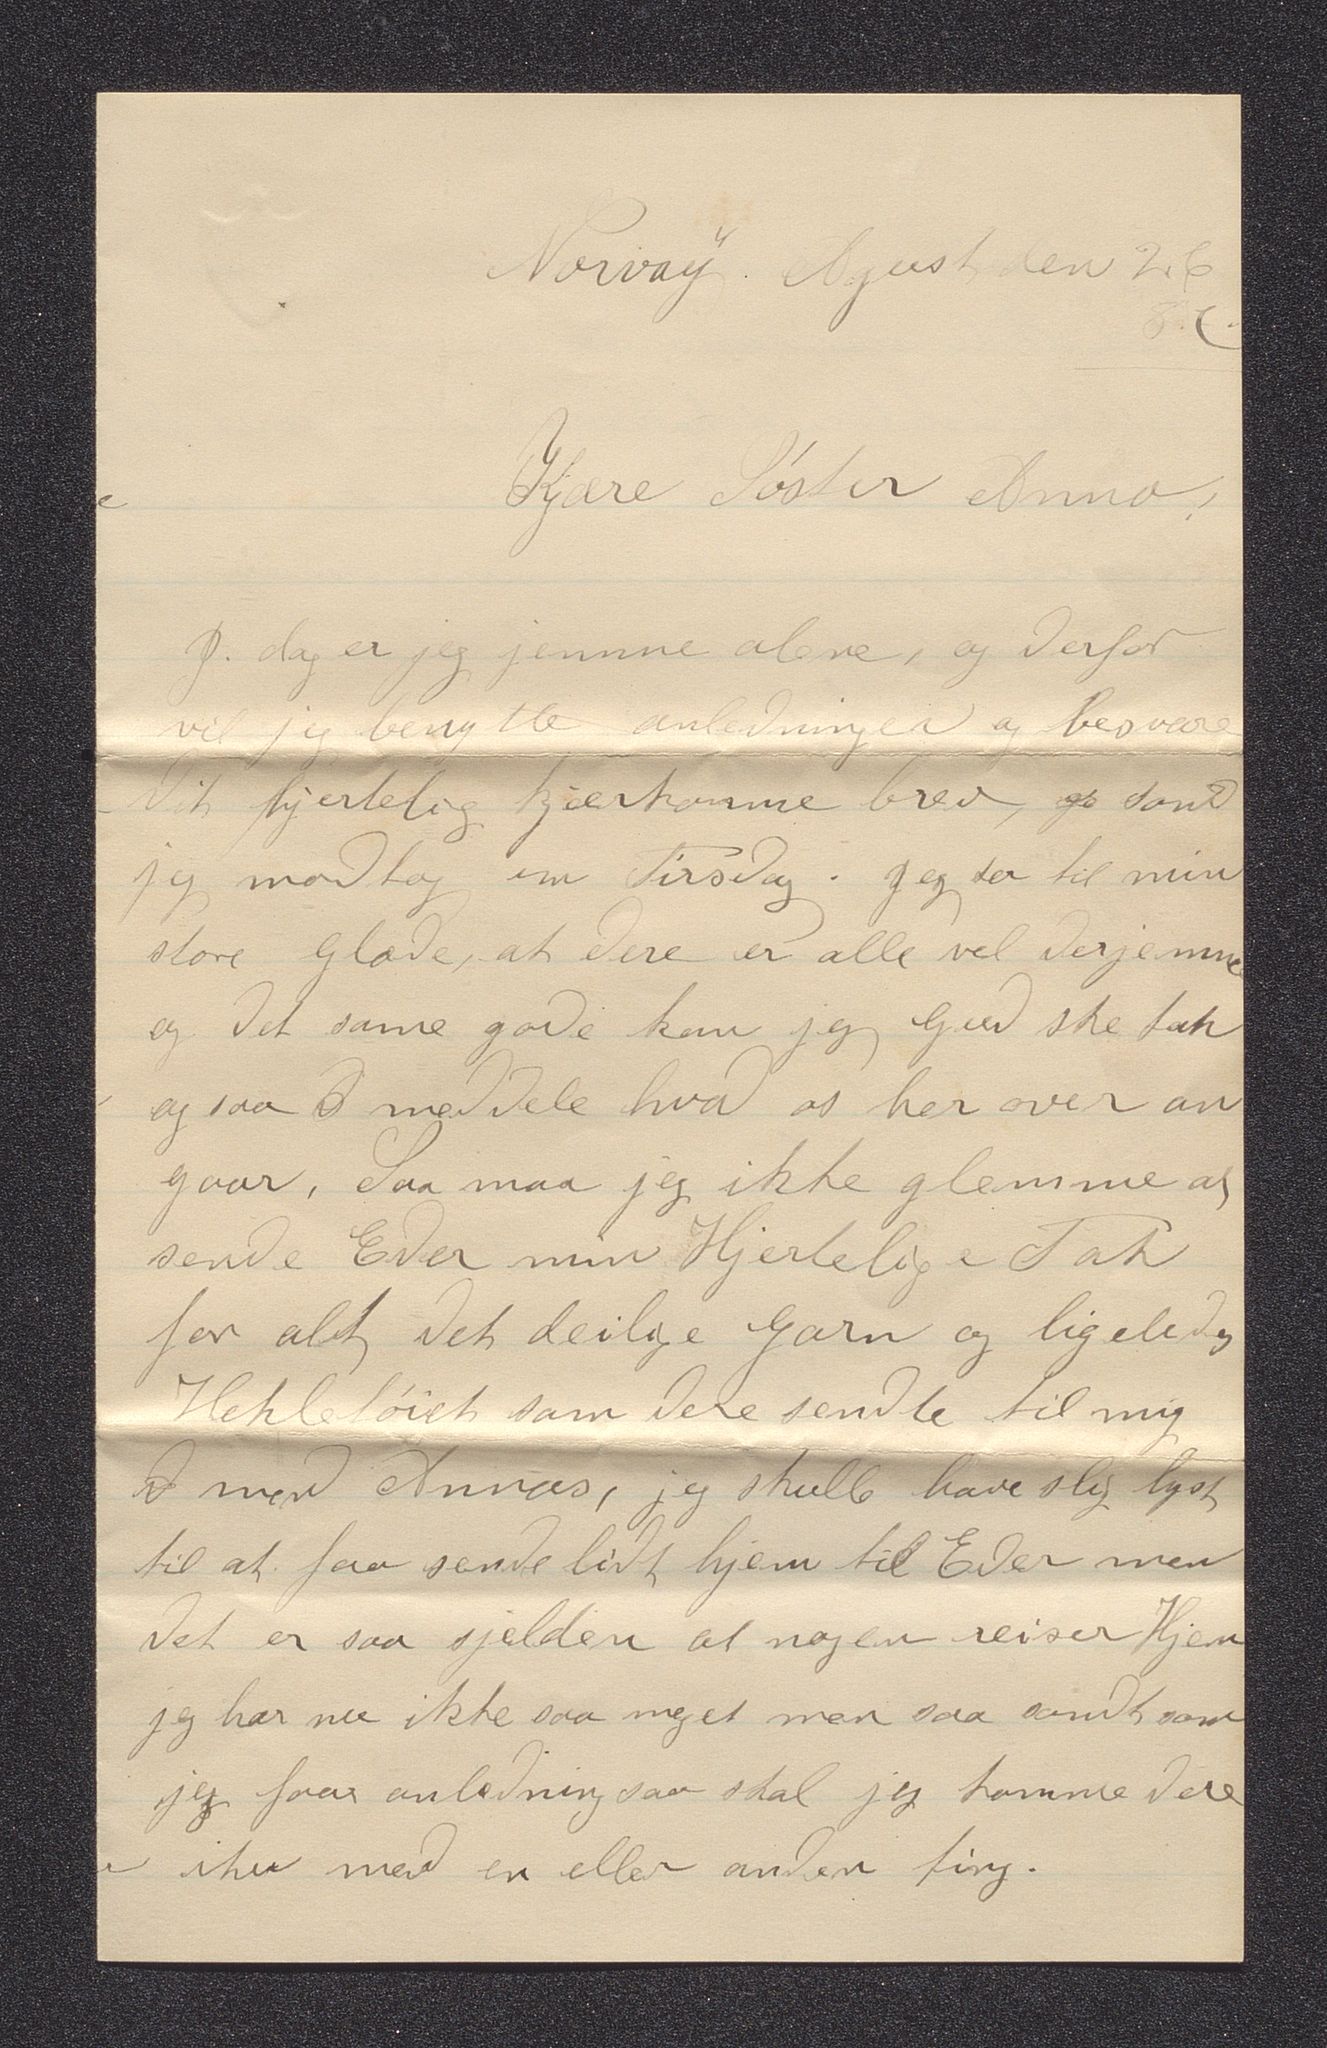 Norvay. Agust den 26
Kjære Søster Anna!
I dag er jeg jemme alene, og derfor
vil jeg benytte anledningen og besvare
dit hjertelig kjærkomne brev, som
jeg modtog em Tirsdag. Jeg ser til min
store Glæde, at dere er alle vel derjemme
og det same gode kan jeg Gud ske tak
og saa meddele hvad os her over an
gaar, Saa maa jeg ikke glemme at
sende Eder min Hjertelige Tak
for alt det deilige Garn og ligeledes
Hekletøiet som dere sendte til mig
med Annæs, jeg skulle have slig lyst
til at faa sende lidt hjem til Eder men
det er saa sjelden at nogen reiser Hjem
jeg har nu ikke saa meget men saa sandt som
jeg faar anledning saa skal jeg komme dere
ihu med en eller anden ting.